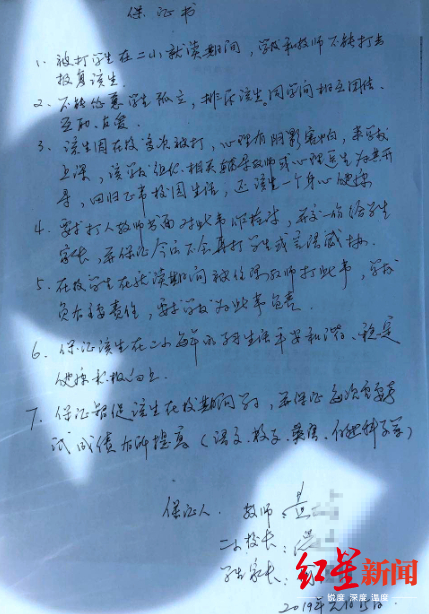 保证书
1、被打学生在二小就读期间，学校和教师不能打击
报复该生。
2、不能怂恿学生孤立，排斥该生。同学间相互团结、
互助、友爱。
3、该生因在校多次被打，心理有阴影害怕，来学校
上课，该学校组织相关辅导教师或心理医生为其开
导，回归正常校园生活，还该生一个身心健康
4、要求打人教师书面对此事作检讨，并交一份给学生
家长，并保证今后不会再打学生或言语威胁。
5、在校学生在就读期间被任课教师打此事，学校
负有主要责任，要求学校为此事负责
6、保证该生在二小每年的学习生活平安和谐、稳定
健康积极向上
7、保证督促该生在校期间学习，并保证每次考
试成绩有所提高（语文、数学、英语、
保证人 教师：
二小校长：
学生家长：
2019年
红星新闻
锐度 深度 温度